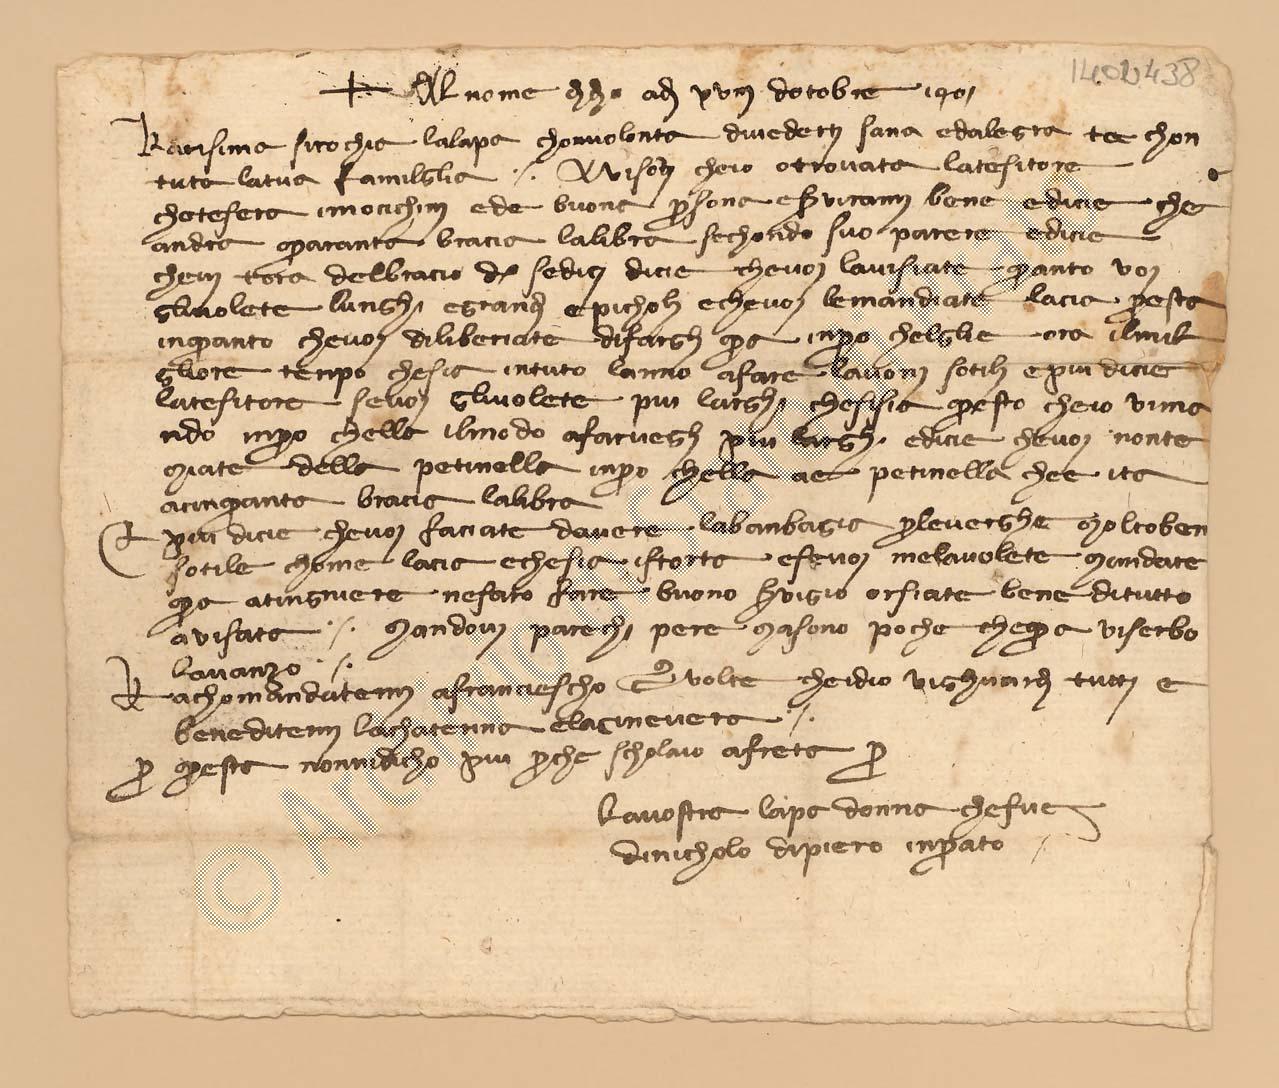 1402438
Al nome di dio adi xviii dotobre 1401
Karisima sirochia lalapa chonvolonta divederti sana edalegra te chon
tuta latua familglia Avisoti cheio otrovata latesitore
chatesera imocichini ede buona persona eserviranvi bene edicie che
andra quaranta bracia lalibra sechondo suo parere edicie
chem tera delbracio d sedici dicie chevoi lavisiate quanto voi
glivolete lunghi egrandi epicholi echevoi lemandiate lacia questa
inquanto chevoi diliberiate difargli qua inpero chelglie ora ilmil
gliore tenpo chesia intuto lanno afare lavori sotili epiu dicie
latesitore sevoi glivolete piu larghi chesisia questo cheio vima
ndo inpero chella ilmodo afarvegli piu larghi edicie chevoi nonte
miate della petinella inpero chella ae petinella chee ita
acinquanta bracia lalibra
E piu dicie chevoi faciate davere labanbagia perleverghe moltoben
sotile chome lacia echesia istorta esevoi melavolete mandare
qua atingniere nefaro fare buono servigio orsiate bene ditutto
avisata Mandovi parechi pere masono poche chequa viserbo
lavanzo
Rachomandatemi afranciescho M volte cheidio vighuardi tutti e
beneditemi lachaterina elaginevera
per questa nonvidicho piu perche scholaio afreta per
Lavostra lapa donna chefue
dinicholo dipiero inprato
© Archivio di Stato di Prato